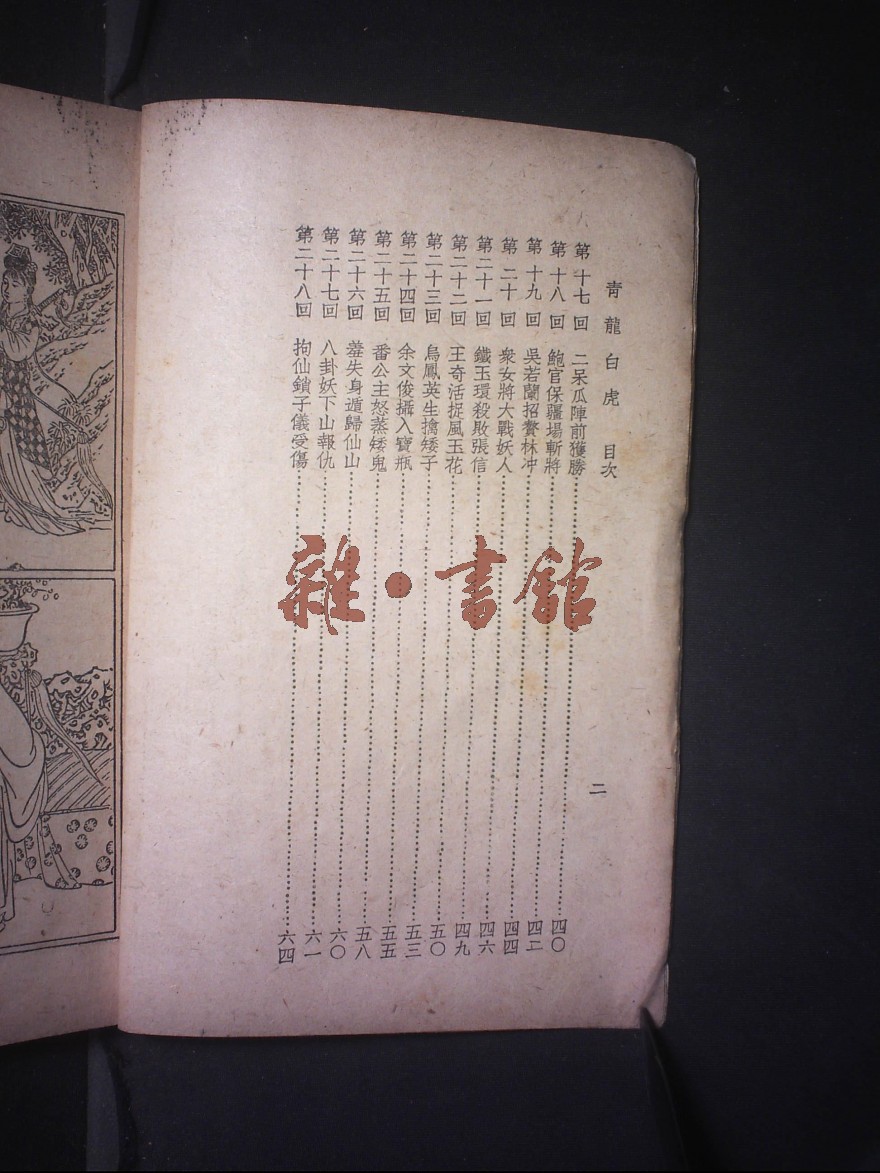 青龍白虎 目次 二
第十七回 二呆瓜陣前獲勝 四〇
第十八回 鮑官保疆場斬將 四二
第十九回 吳若蘭招贅林冲 四四
第二十回 衆女將大戰妖人 四六
第二十一回 鐵玉環殺敗張信 四九
第二十二回 王奇活捉風玉花 五〇
第二十三回 烏鳳英生擒矮子 五三
第二十四回 余文俊攝入寶瓶 五五
第二十五回 番公主怒蒸矮鬼 五八
第二十六回 羞失身遁歸仙山 六〇
第二十七回 八卦妖下山報仇 六一
第二十八回 拘仙鎖子儀受傷 六四
雜·書館